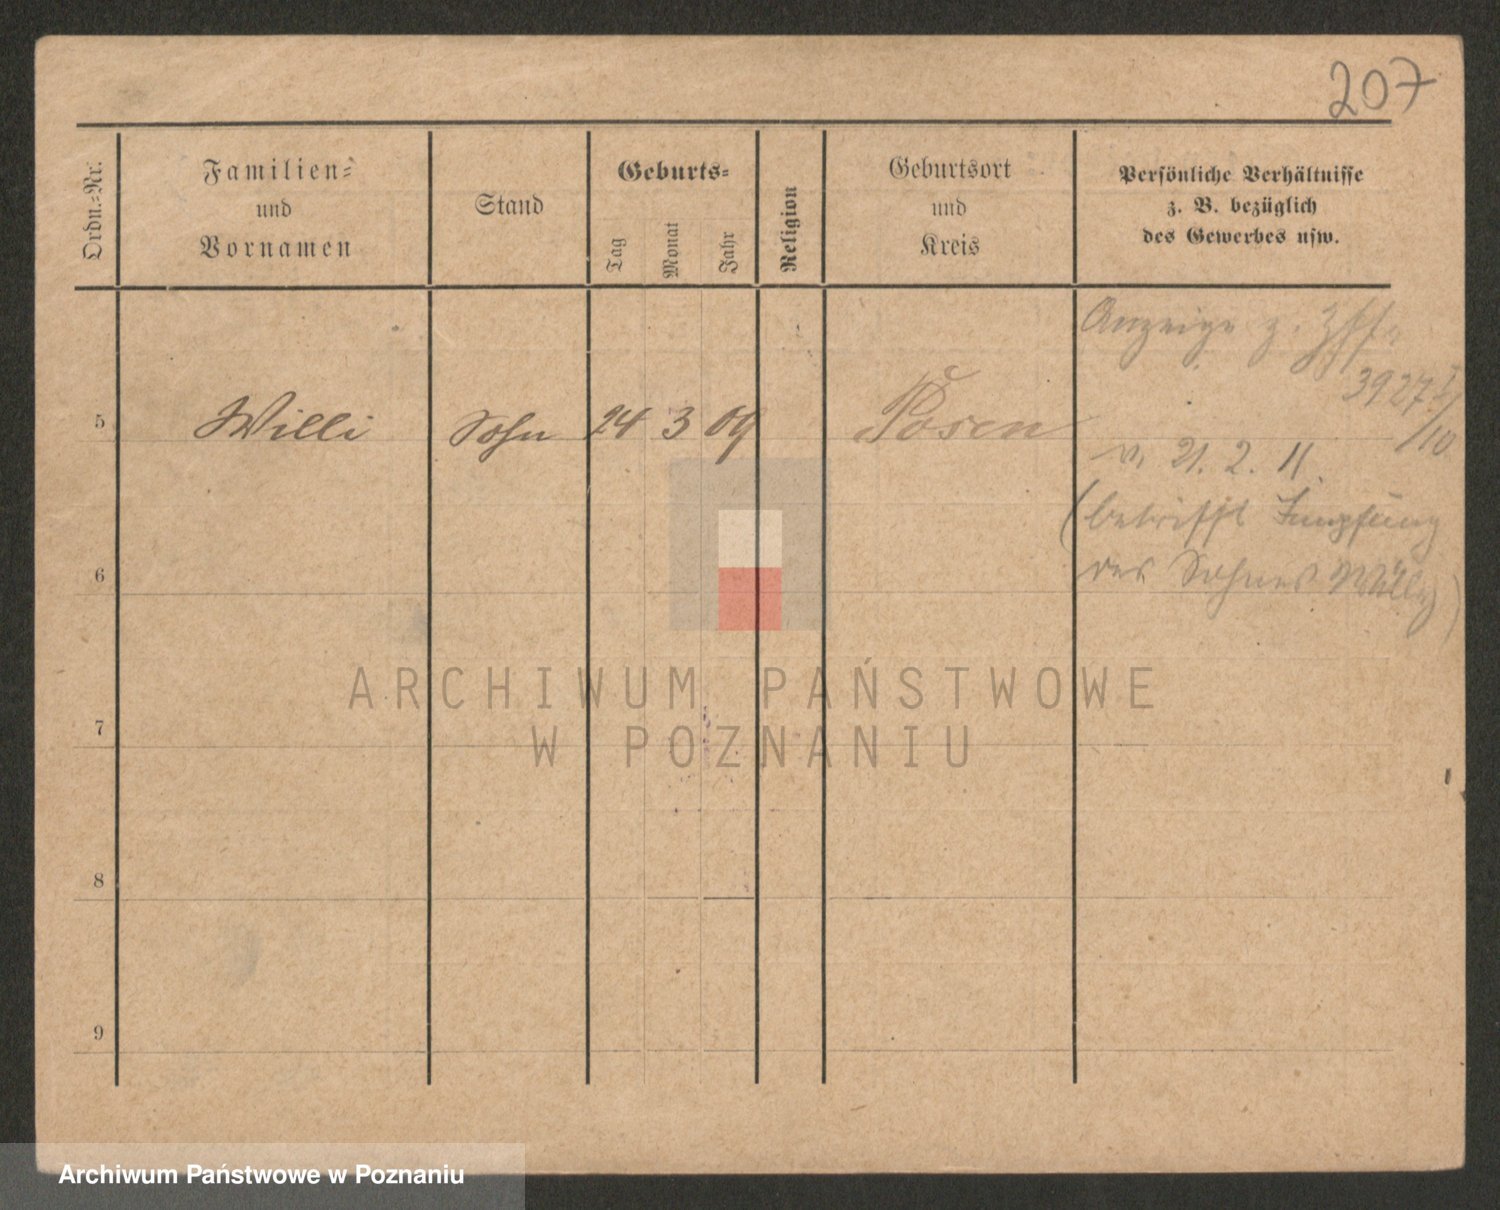 207
Ordn.-Nr.
Familien-
und
Vornamen
Stand
Geburts-
Tag
Monat
Jahr
Religion
Geburtsort
und
Kreis
Persönliche Verhältnisse
z. B. bezüglich
des Gewerbes usw.
Anzeige z.
3927
/10
5 Willi Sohn 24 3 09 Posen
v. 21. 2. 11.
(betrifft Impfung
6
des Sohnes Willy)
ARCHIWUM PAŃSTWOWE
7
W POZNANIU
8
9
Archiwum Państwowe w Poznaniu